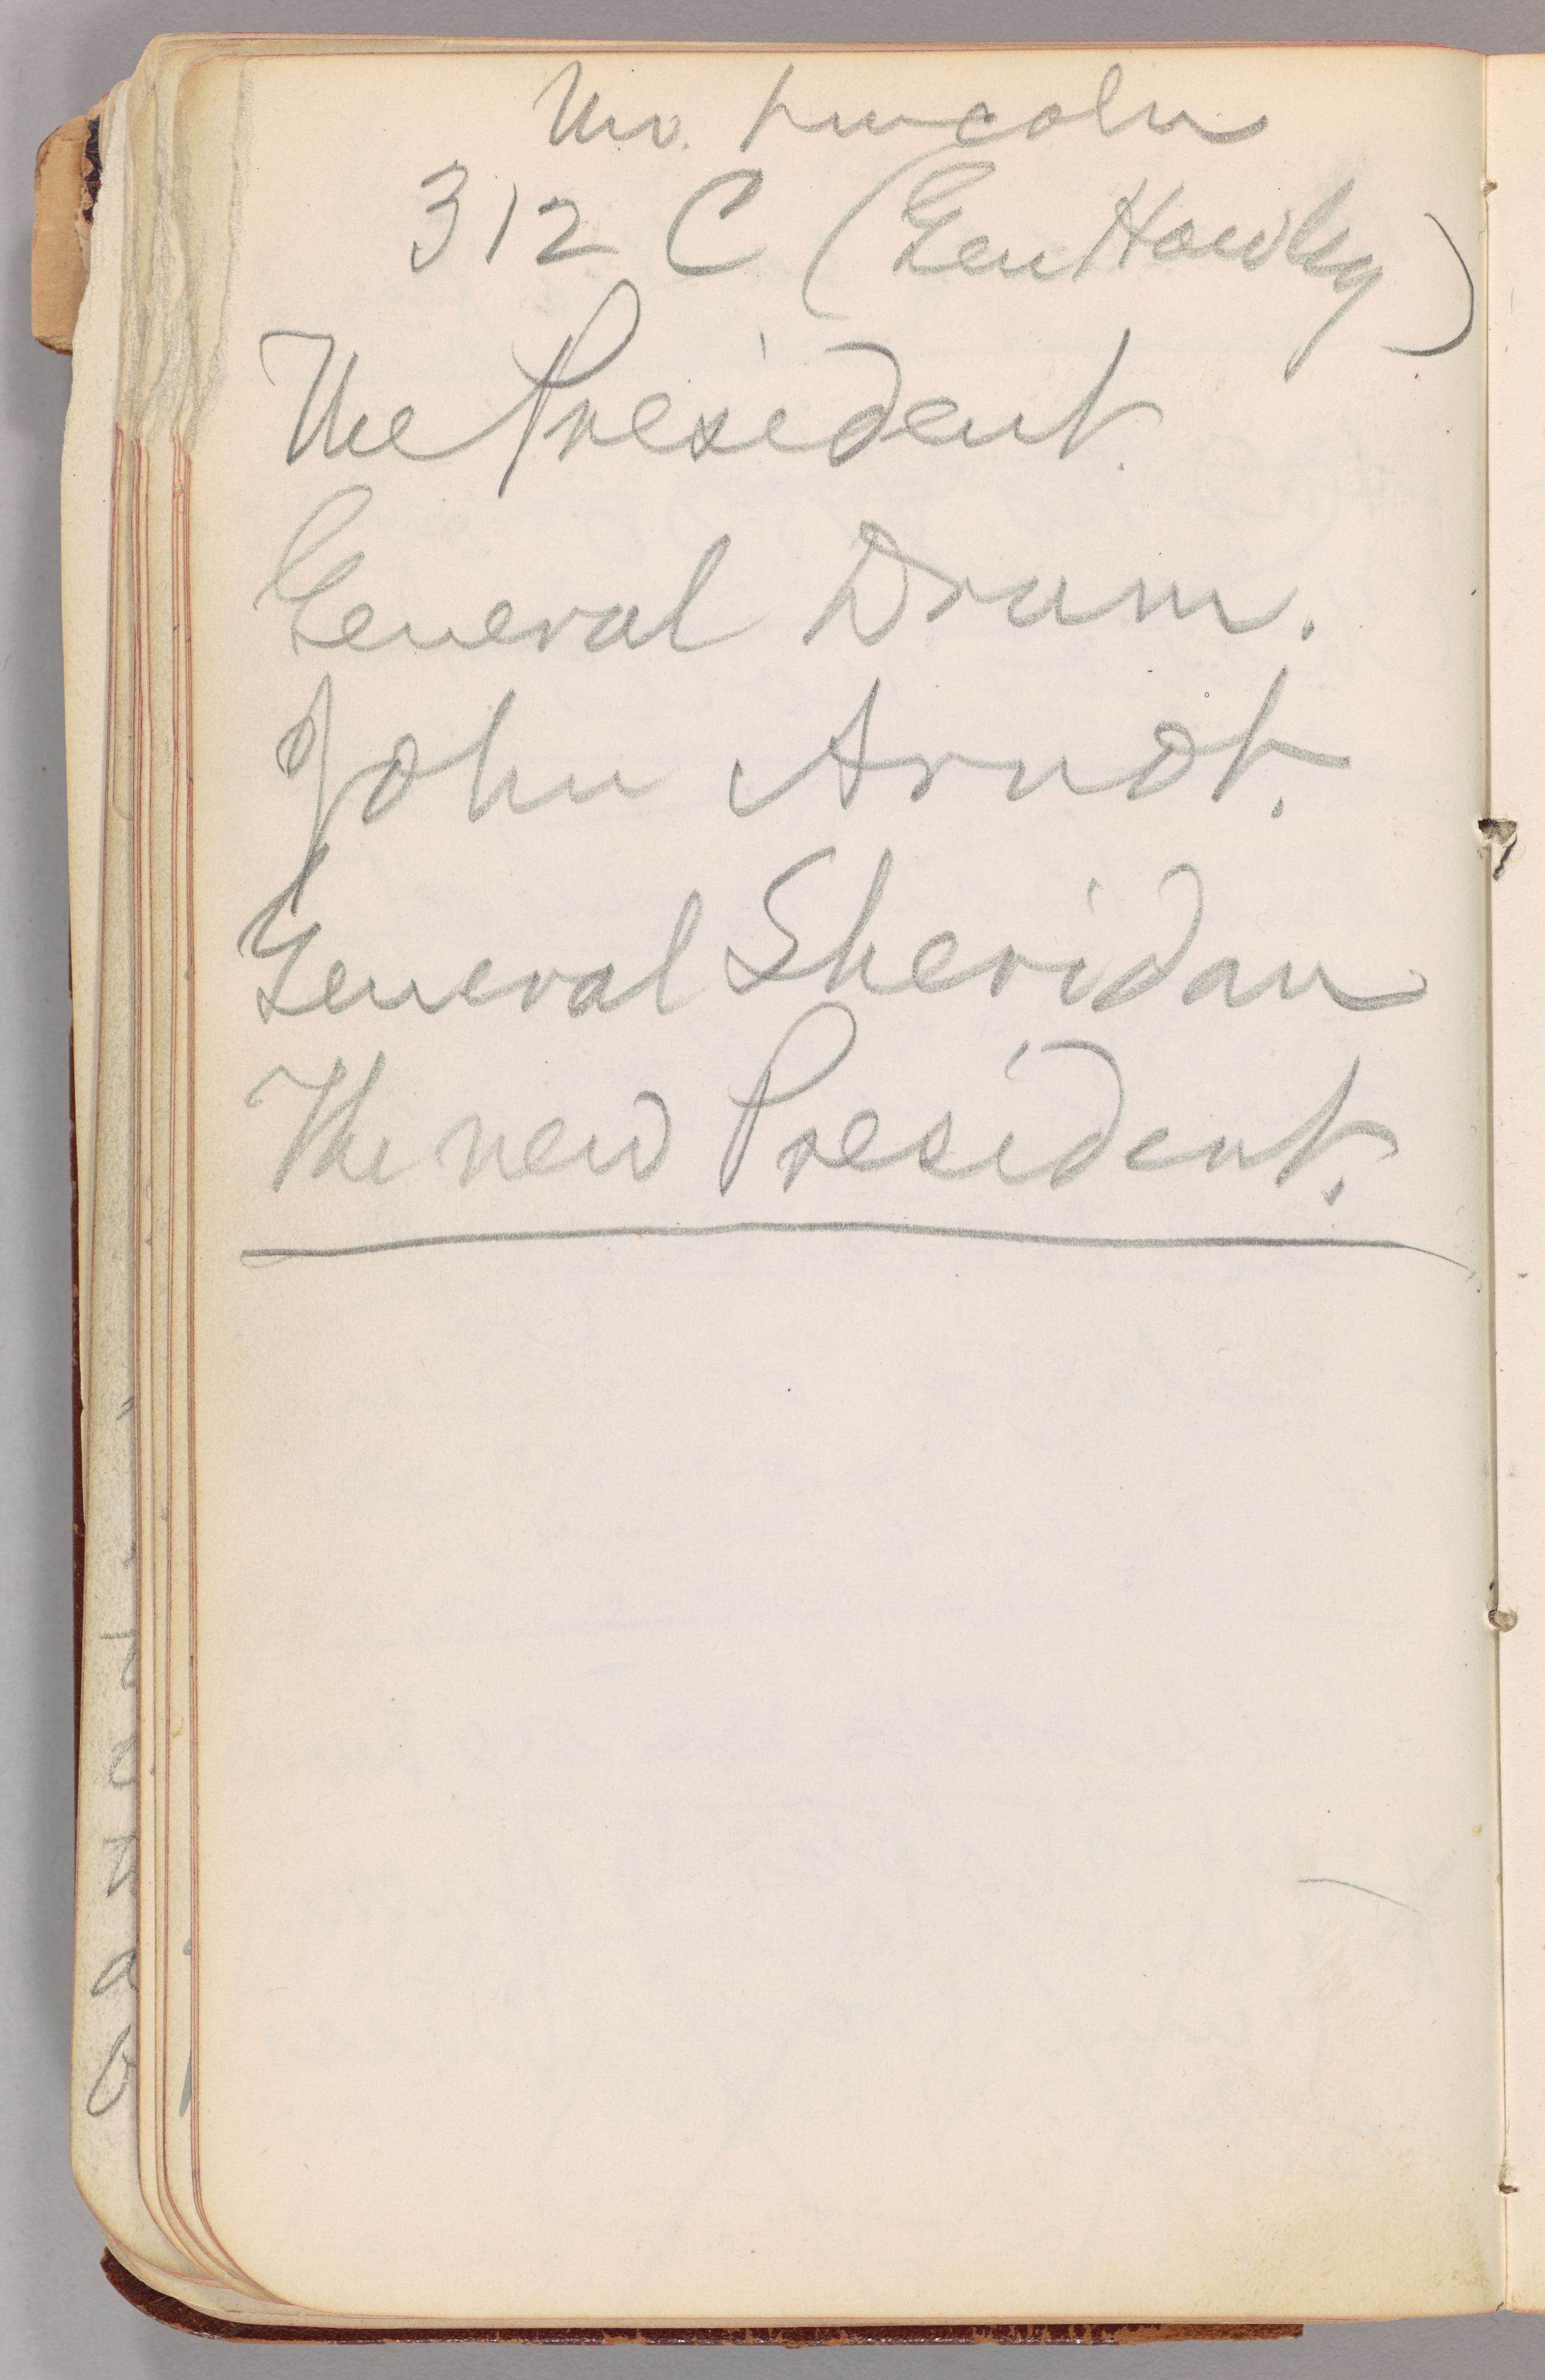 Mr. Lincoln
312 C (Gen Hawley)
The President.
General Drum.
John Arndt.
General Sheridan
The new President.